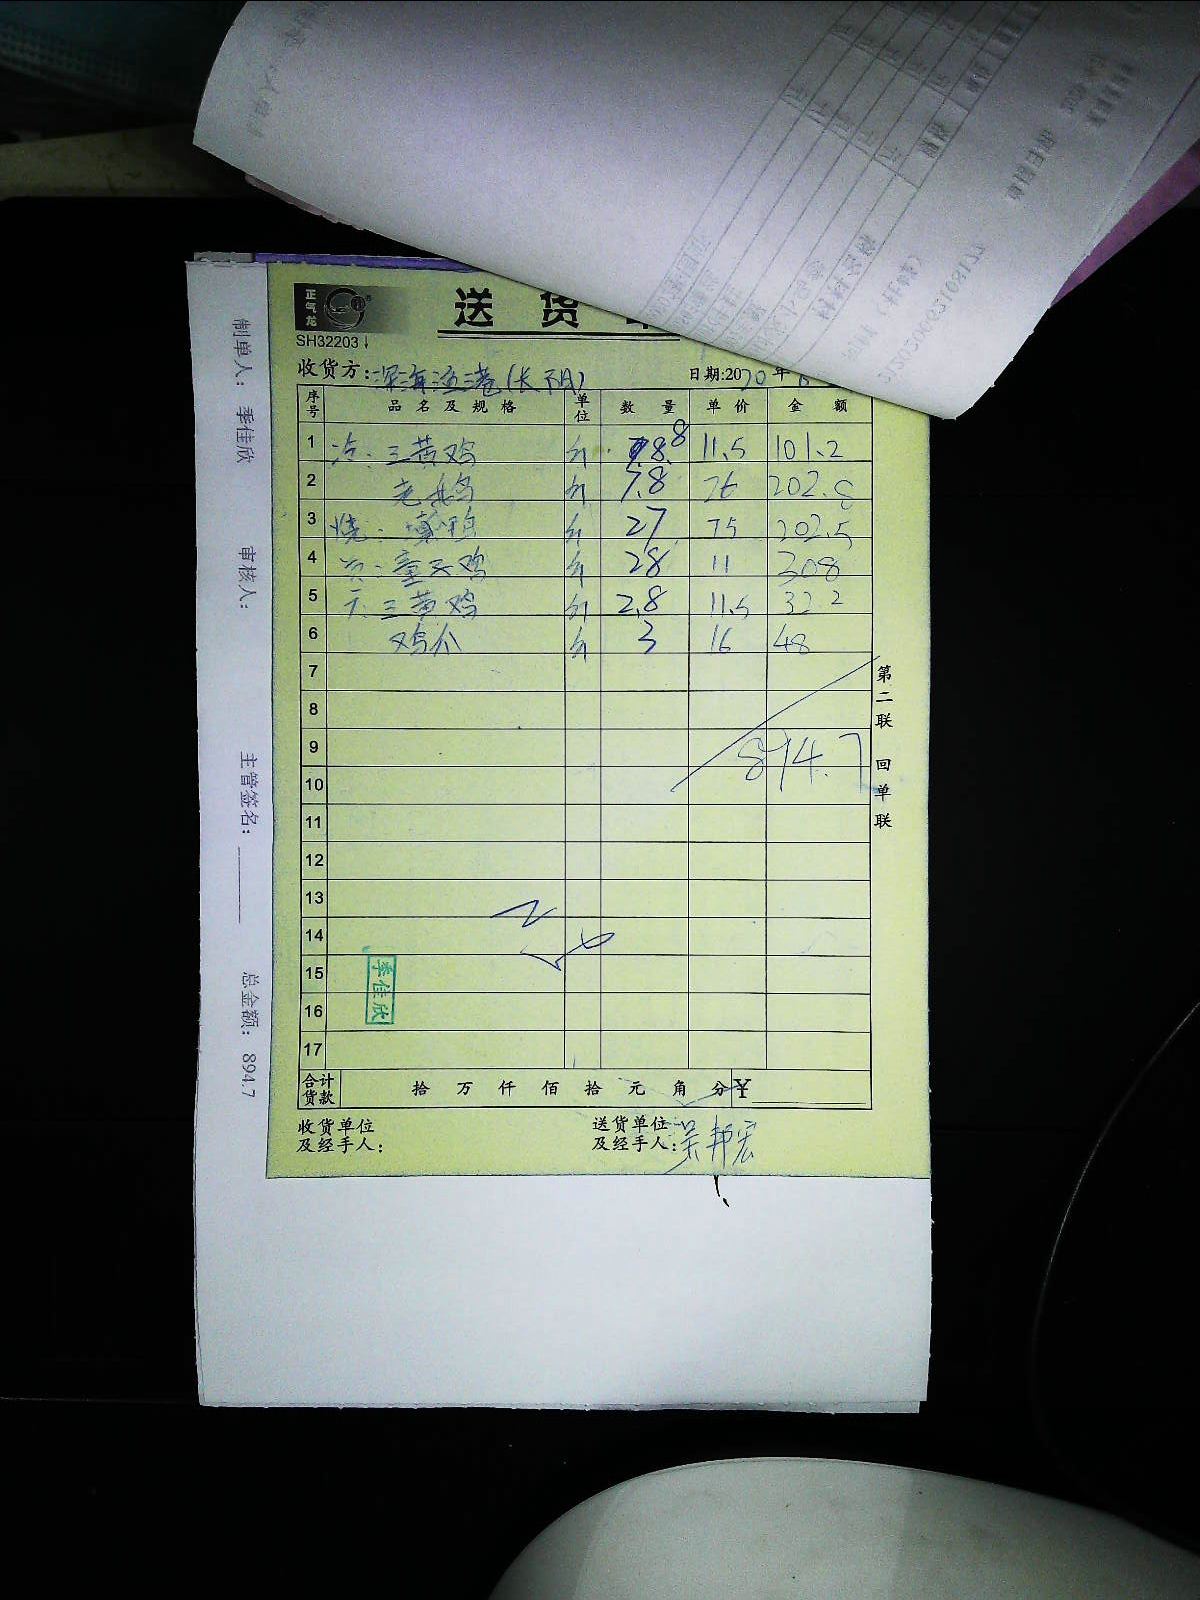 正气龙
送 货
SH32203
收货方:深海渔港(长阳)
日期:2020年
序号 品名及规格 单位 数量 单价 金额
1 三黄鸡 斤 8.8 11.5 101.2
2 老母鸡 斤 7.8 26 202.8
3 斤 27 75 202.5
4 童子鸡 斤 28 11 308
5 三黄鸡 斤 2.8 11.5 32.2
6 鸡爪 斤 3 16 48
7
8
9 894.7
10
11
12
13
14
15
16
17
季佳欣
合计货款 拾 万 仟 佰 拾 元 角 分 ¥
收货单位及经手人:
送货单位及经手人:吴邦宏
第二联 回单联
制单人: 季佳欣 审核人: 主管签名: 总金额: 894.7